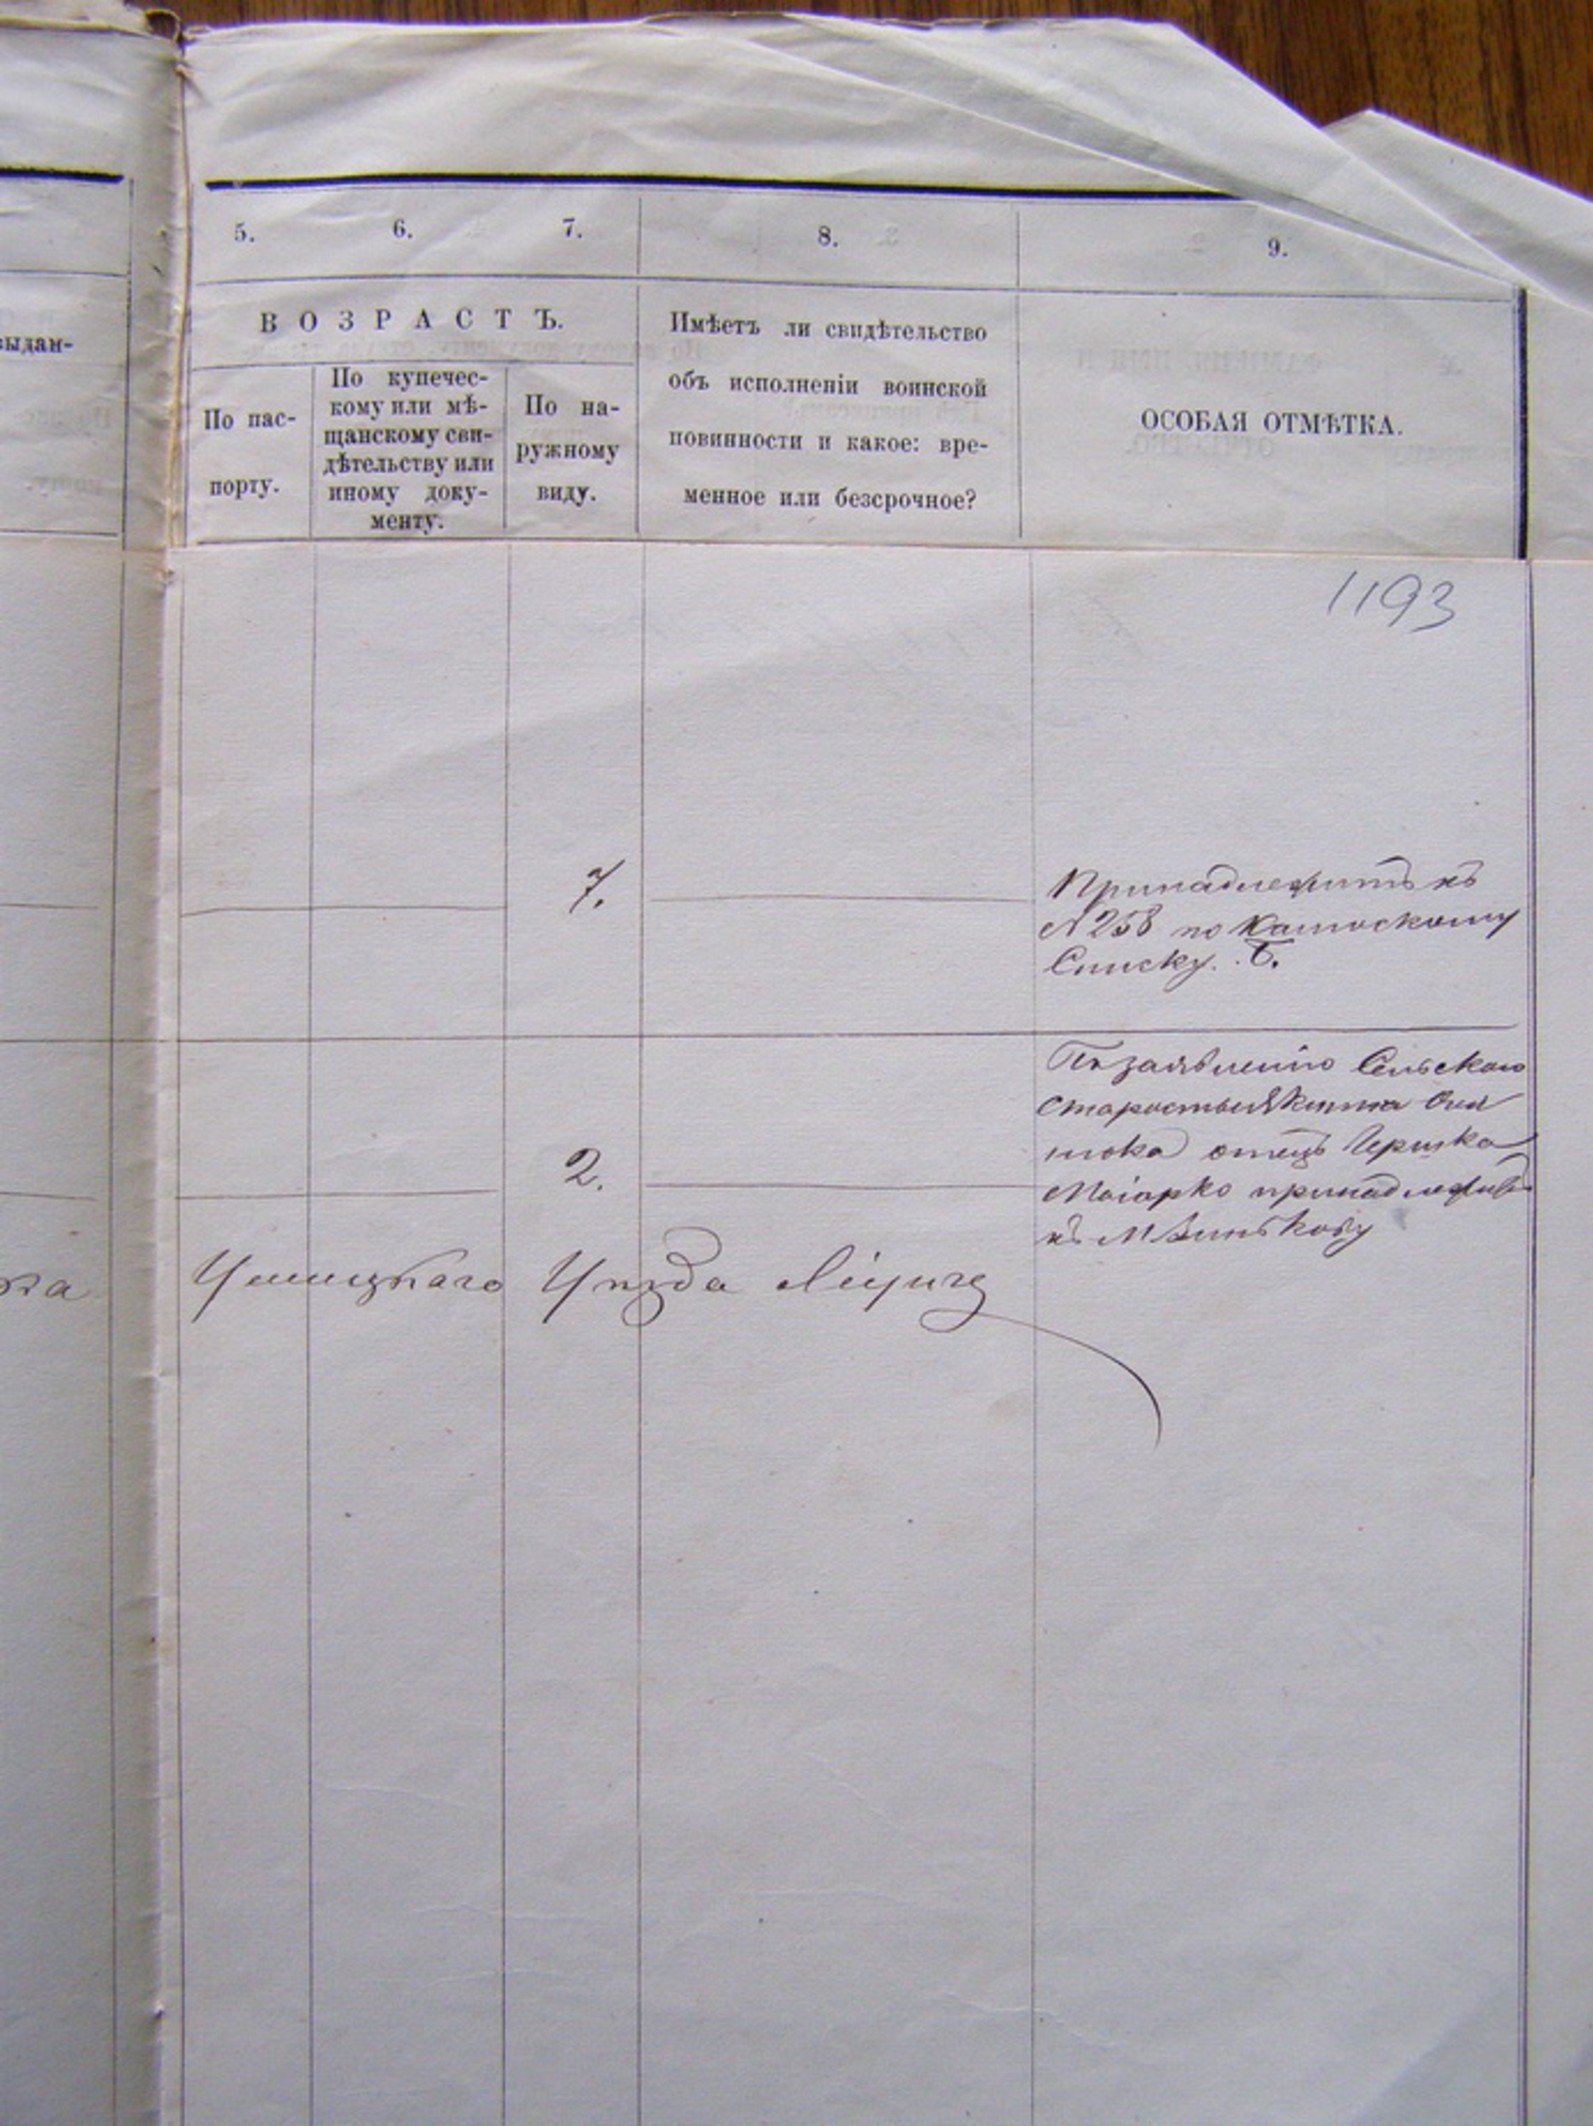 5. 6. 7. 8. 9.
выдан-
ВОЗРАСТЪ.
По пас-
порту.
По купечес-
кому или мѣ-
щанскому сви-
дѣтельству или
иному доку-
менту.
По на-
ружному
виду.
Имѣетъ ли свидѣтельство
объ исполненіи воинской
повинности и какое: вре-
менное или безсрочное?
ОСОБАЯ ОТМѢТКА.
1193
7.
Принадлежитъ къ
№ 258 по
Списку. Б.
2.
По заявленію Сельскаго
Старосты
отецъ Гершко
принадлежитъ
къ М Зинькову
Ушицкаго Уѣзда